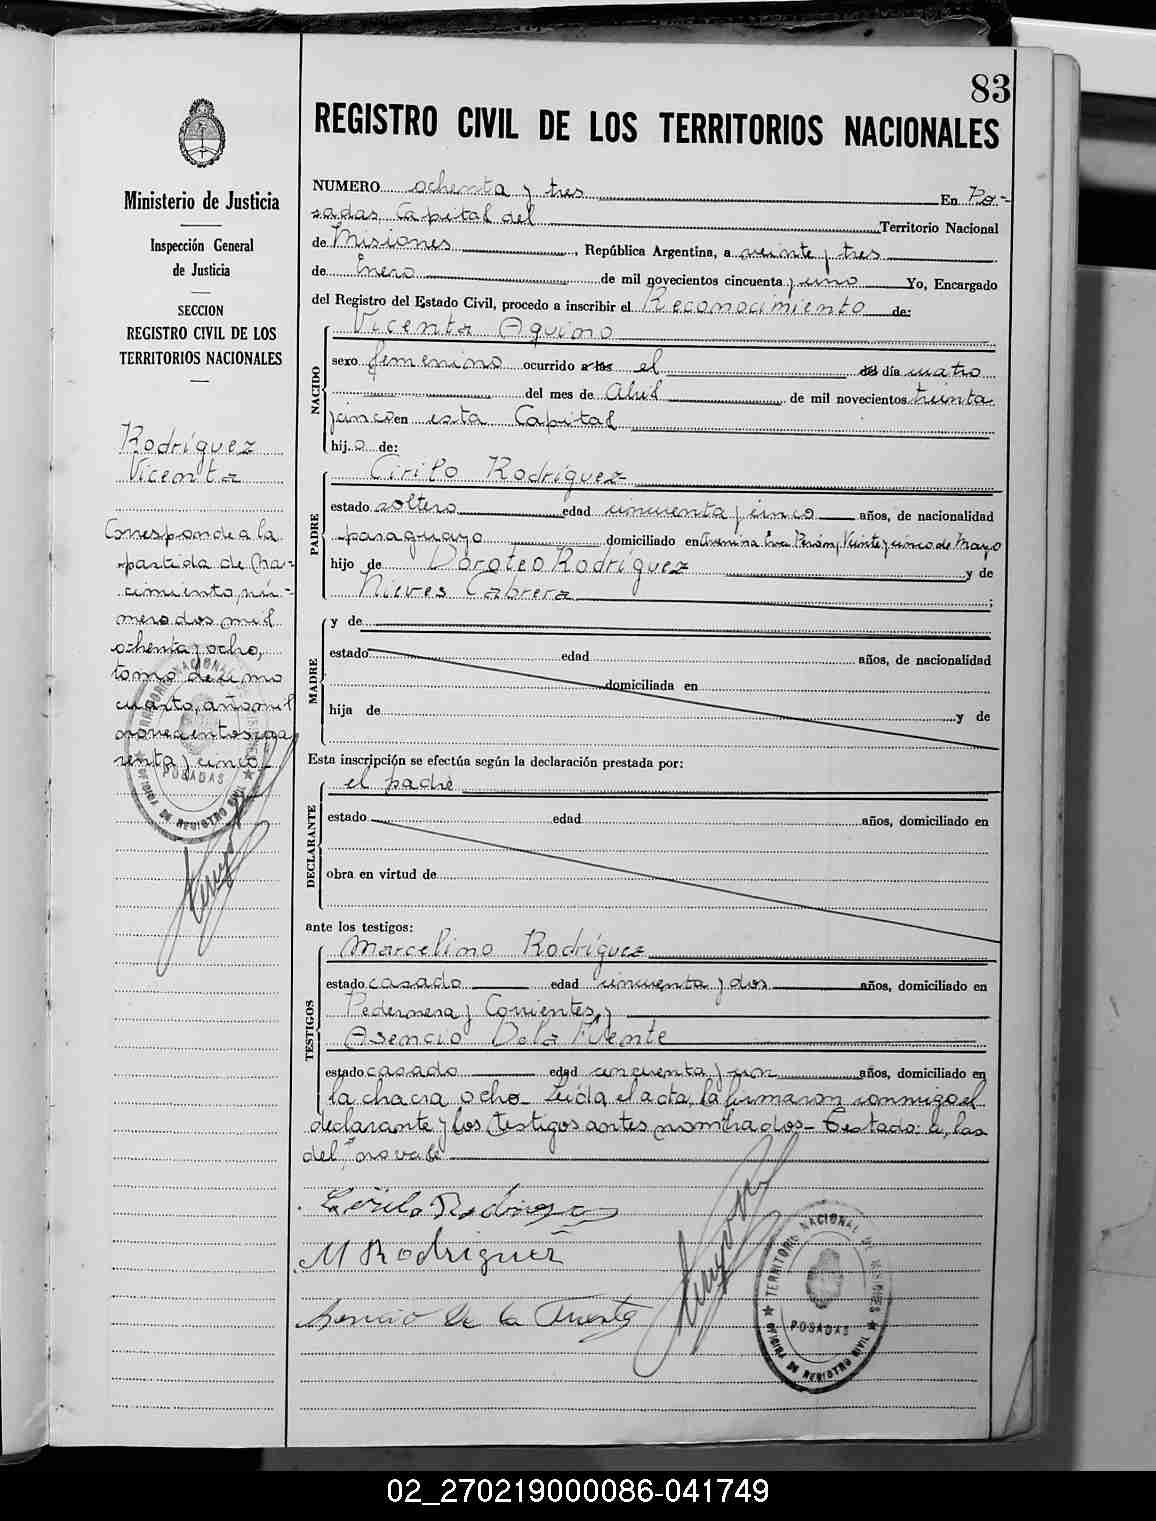 83
REGISTRO CIVIL DE LOS TERRITORIOS NACIONALES
Ministerio de Justicia
Inspección General
de Justicia
SECCION
REGISTRO CIVIL DE LOS
TERRITORIOS NACIONALES
Rodríguez
Vicenta
Corresponde a la
partida de Na-
cimiento, nú-
mero dos mil
ochenta y ocho,
tomo décimo
cuarto, año mil
novecientos cua
renta y cinco
TERRITORIO NACIONAL DE MISIONES
POSADAS
OFICINA DE REGISTRO CIVIL
NUMERO ochenta y tres En Po-
sadas Capital del Territorio Nacional
de Misiones, República Argentina, a veinte y tres
de Enero de mil novecientos cincuenta y uno Yo, Encargado
del Registro del Estado Civil, procedo a inscribir el Reconocimiento de:
NACIDO
Vicenta Aquino
sexo femenino ocurrido a las el del día cuatro
del mes de Abril de mil novecientos treinta
y cinco en esta Capital
hij.a de:
PADRE
Cirilo Rodríguez
estado soltero edad cincuenta y cinco años, de nacionalidad
paraguayo domiciliado en Avenina Eva Perón y Veinte y cinco de Mayo
hijo de Doroteo Rodríguez y de
Nieves Cabrera ;
MADRE
y de
estado edad años, de nacionalidad
domiciliada en
hija de y de
Esta inscripción se efectúa según la declaración prestada por:
DECLARANTE
el padre
estado edad años, domiciliado en
obra en virtud de
ante los testigos:
TESTIGOS
Marcelino Rodríguez
estado casado edad cincuenta y dos años, domiciliado en
Pedernera y Corrientes, y
Asencio De la Fuente
estado casado edad cincuenta y un años, domiciliado en
la chacra ocho_ Leída el acta, la firmaron conmigo el
declarante y los testigos antes nombrados_ Testado: a, las
del, no vale
Cirilo Rodriguez
M Rodriguez
Asencio De la Fuente
TERRITORIO NACIONAL DE MISIONES
POSADAS
OFICINA DE REGISTRO CIVIL
02_270219000086-041749